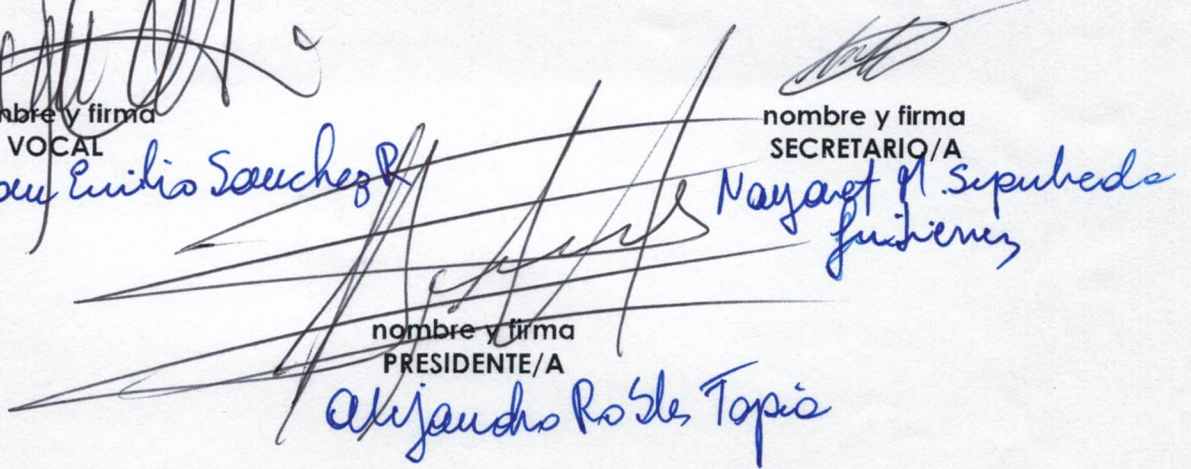 nombre y firma
VOCAL
Emilio Sanchez R
nombre y firma
SECRETARIO/A
M. Sepulveda
Gutierrez
nombre y firma
PRESIDENTE/A
Alejandro Robles Tapia